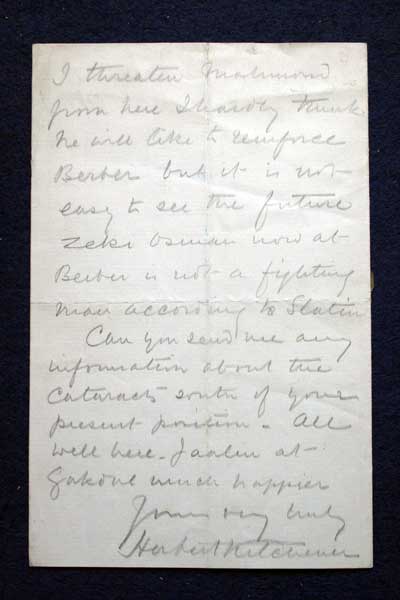 I threaten Mahmoud
from here I hardly think
he will like to reinforce
Berber but it is not
easy to see the future
Zeki Osman now at
Berber is not a fighting
man according to Slatin
Can you send me any
information about the
cataracts south of your
present position - All
well here - Jaalin at
Gakdul much happier
Yours very truly
Herbert Kitchener